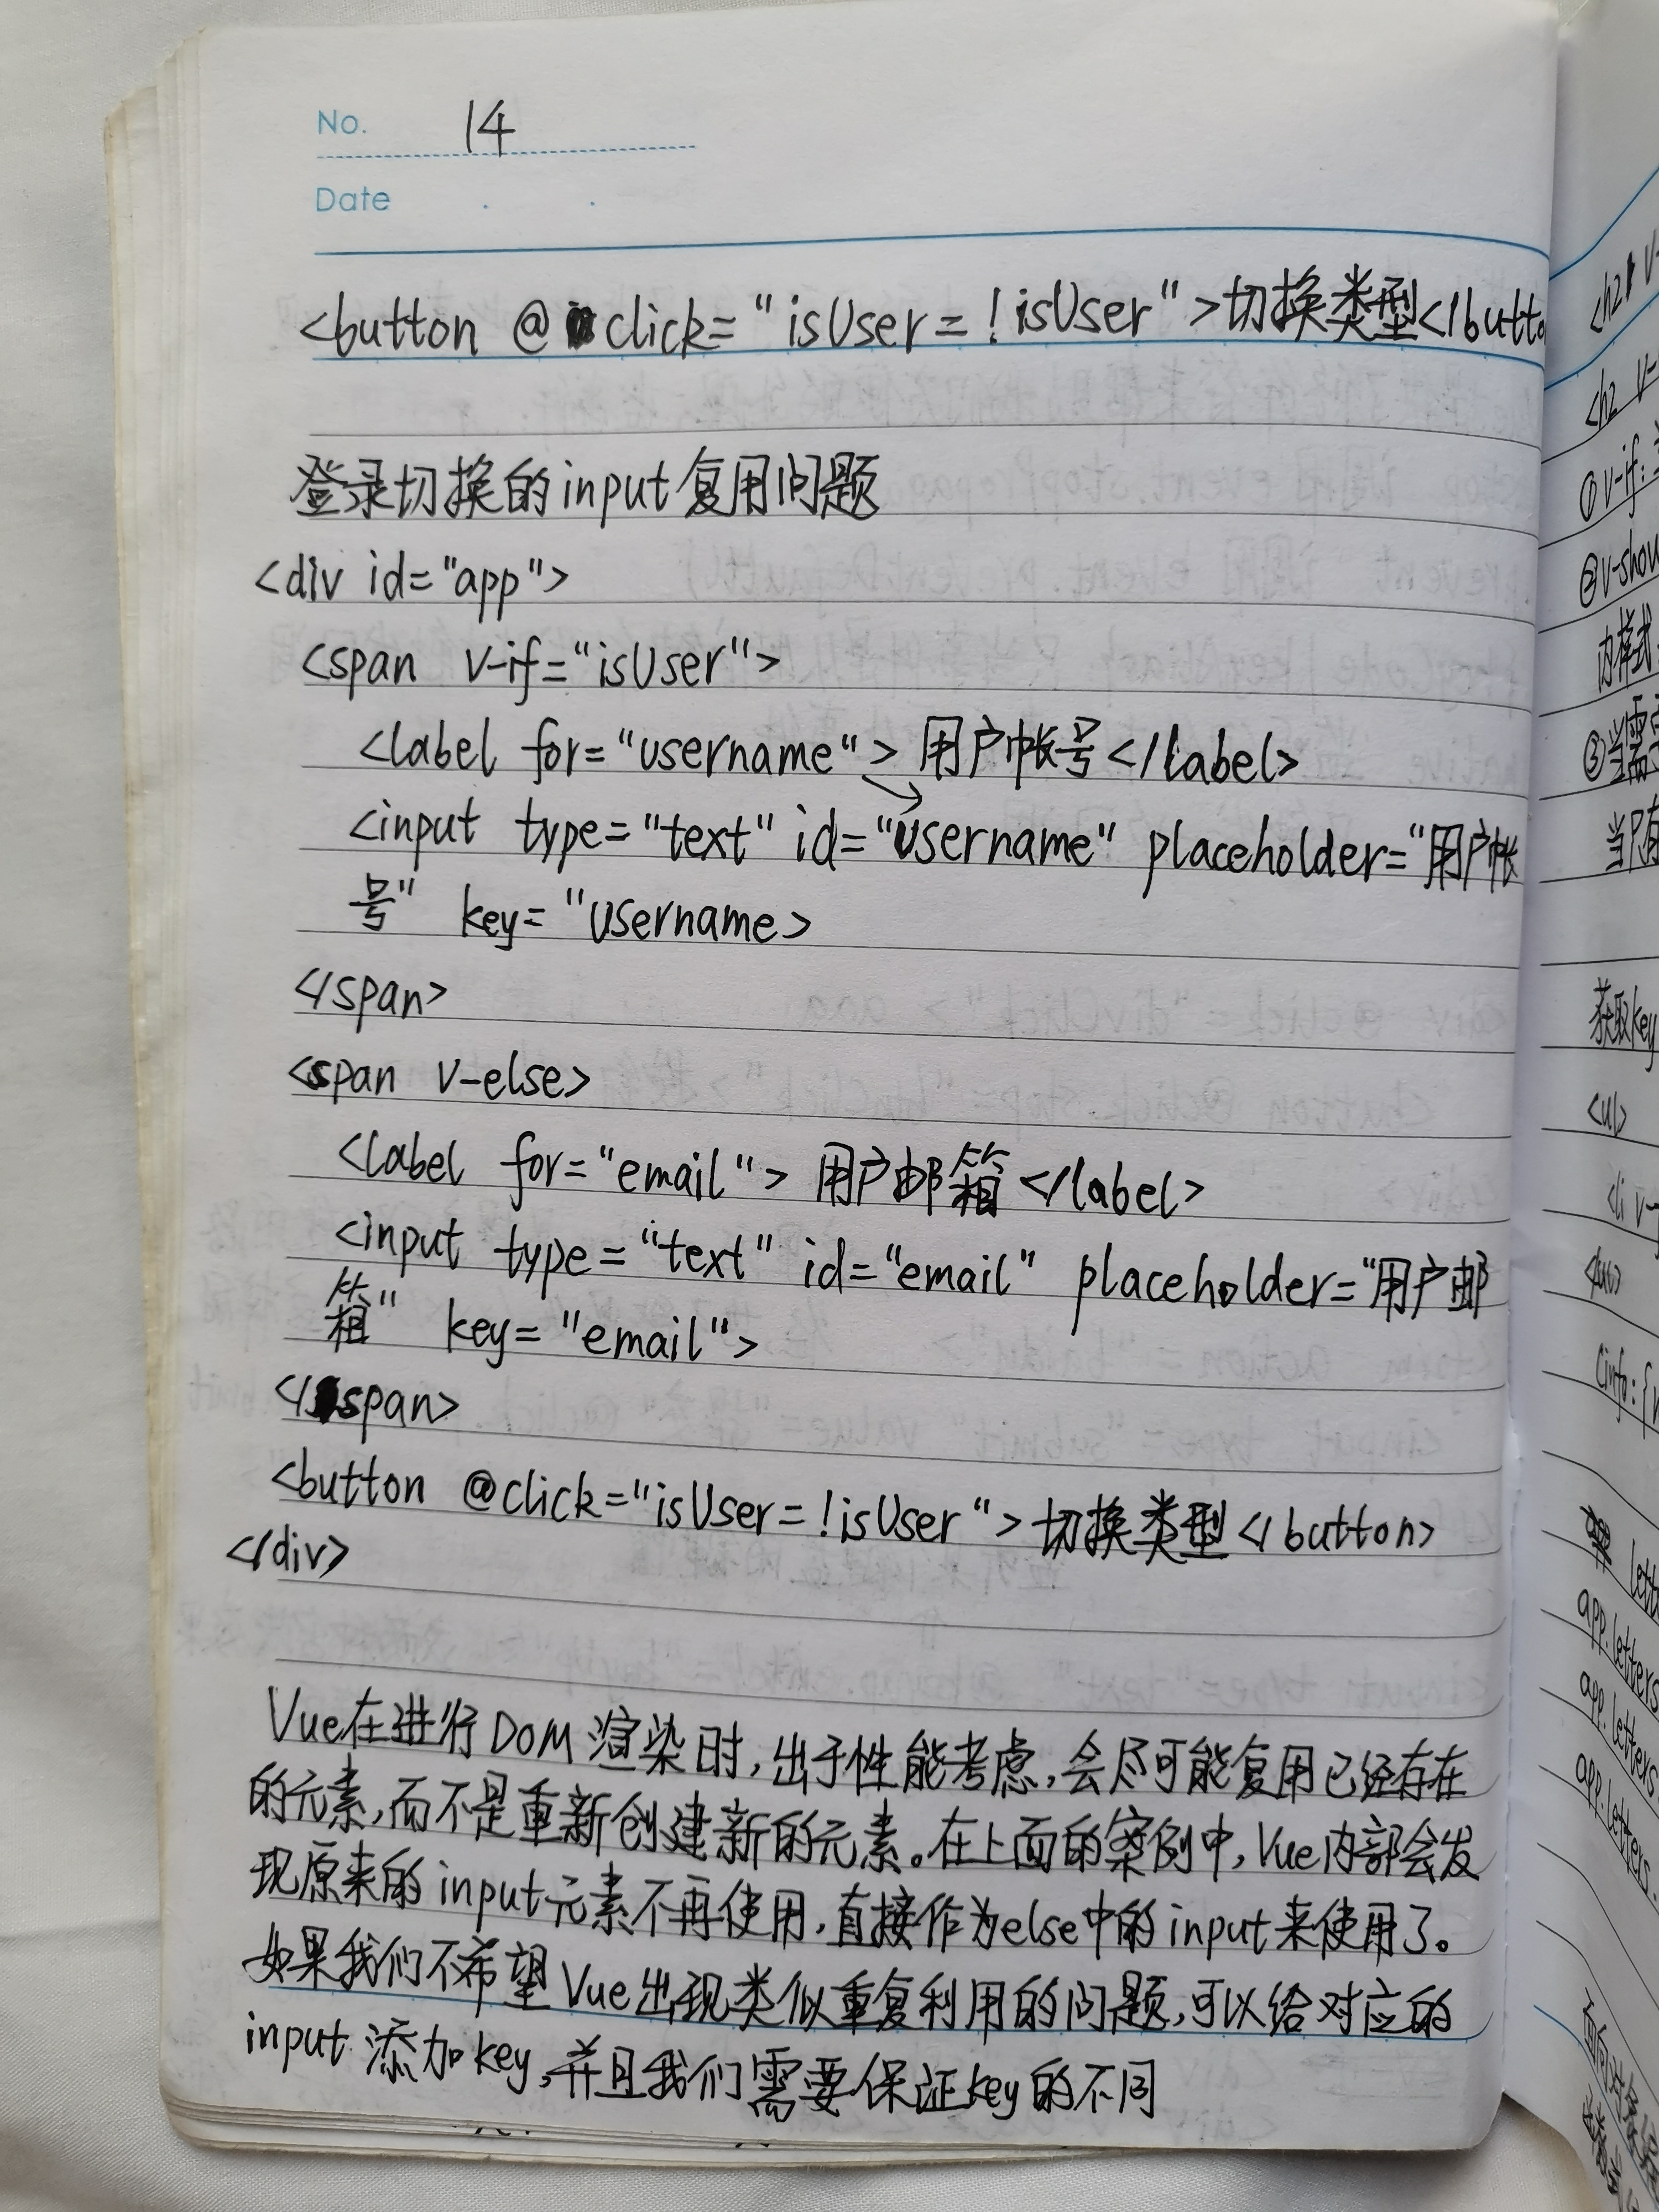 No. 14
Date
<button @click="isUser=!isUser">切换类型</butto
登录切换的input复用问题
<div id="app">
<span v-if="isUser">
<label for="username">用户帐号</label>
<input type="text" id="username" placeholder="用户帐
号" key="username>
</span>
<span v-else>
<label for="email">用户邮箱</label>
<input type="text" id="email" placeholder="用户邮
箱" key="email">
</span>
<button @click="isUser=!isUser">切换类型</button>
</div>
Vue在进行DOM渲染时,出于性能考虑,会尽可能复用已经存在
的元素,而不是重新创建新的元素。在上面的案例中,Vue内部会发
现原来的input元素不再使用,直接作为else中的input来使用了。
如果我们不希望Vue出现类似重复利用的问题,可以给对应的
input添加key,并且我们需要保证key的不同
<h2 v-
<h2 v-
①v-if:
②v-show
内样式
③当需
当只有
获取key
<ul>
<li v-
</ul>
(info:{
lett
app.letters
app.letters
app.letters.